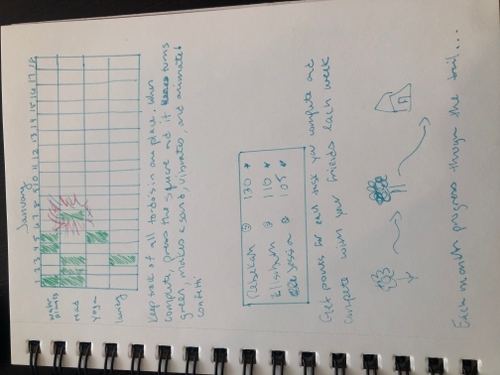 January
1 2 3 4 5 6 7 8 9 10 11 12 13 14 15 16 17 18
Water
plants
read
Yoga
laundry
Keep track of all to dos in one place, when
complete, press the square and it turns
green, makes a sound, vibrates, and animated
confetti
Rebekah 130
Elisham 110
Jessica 105
Get points for each task you complete and
compete with your friends each week
Each month progress through the trail...